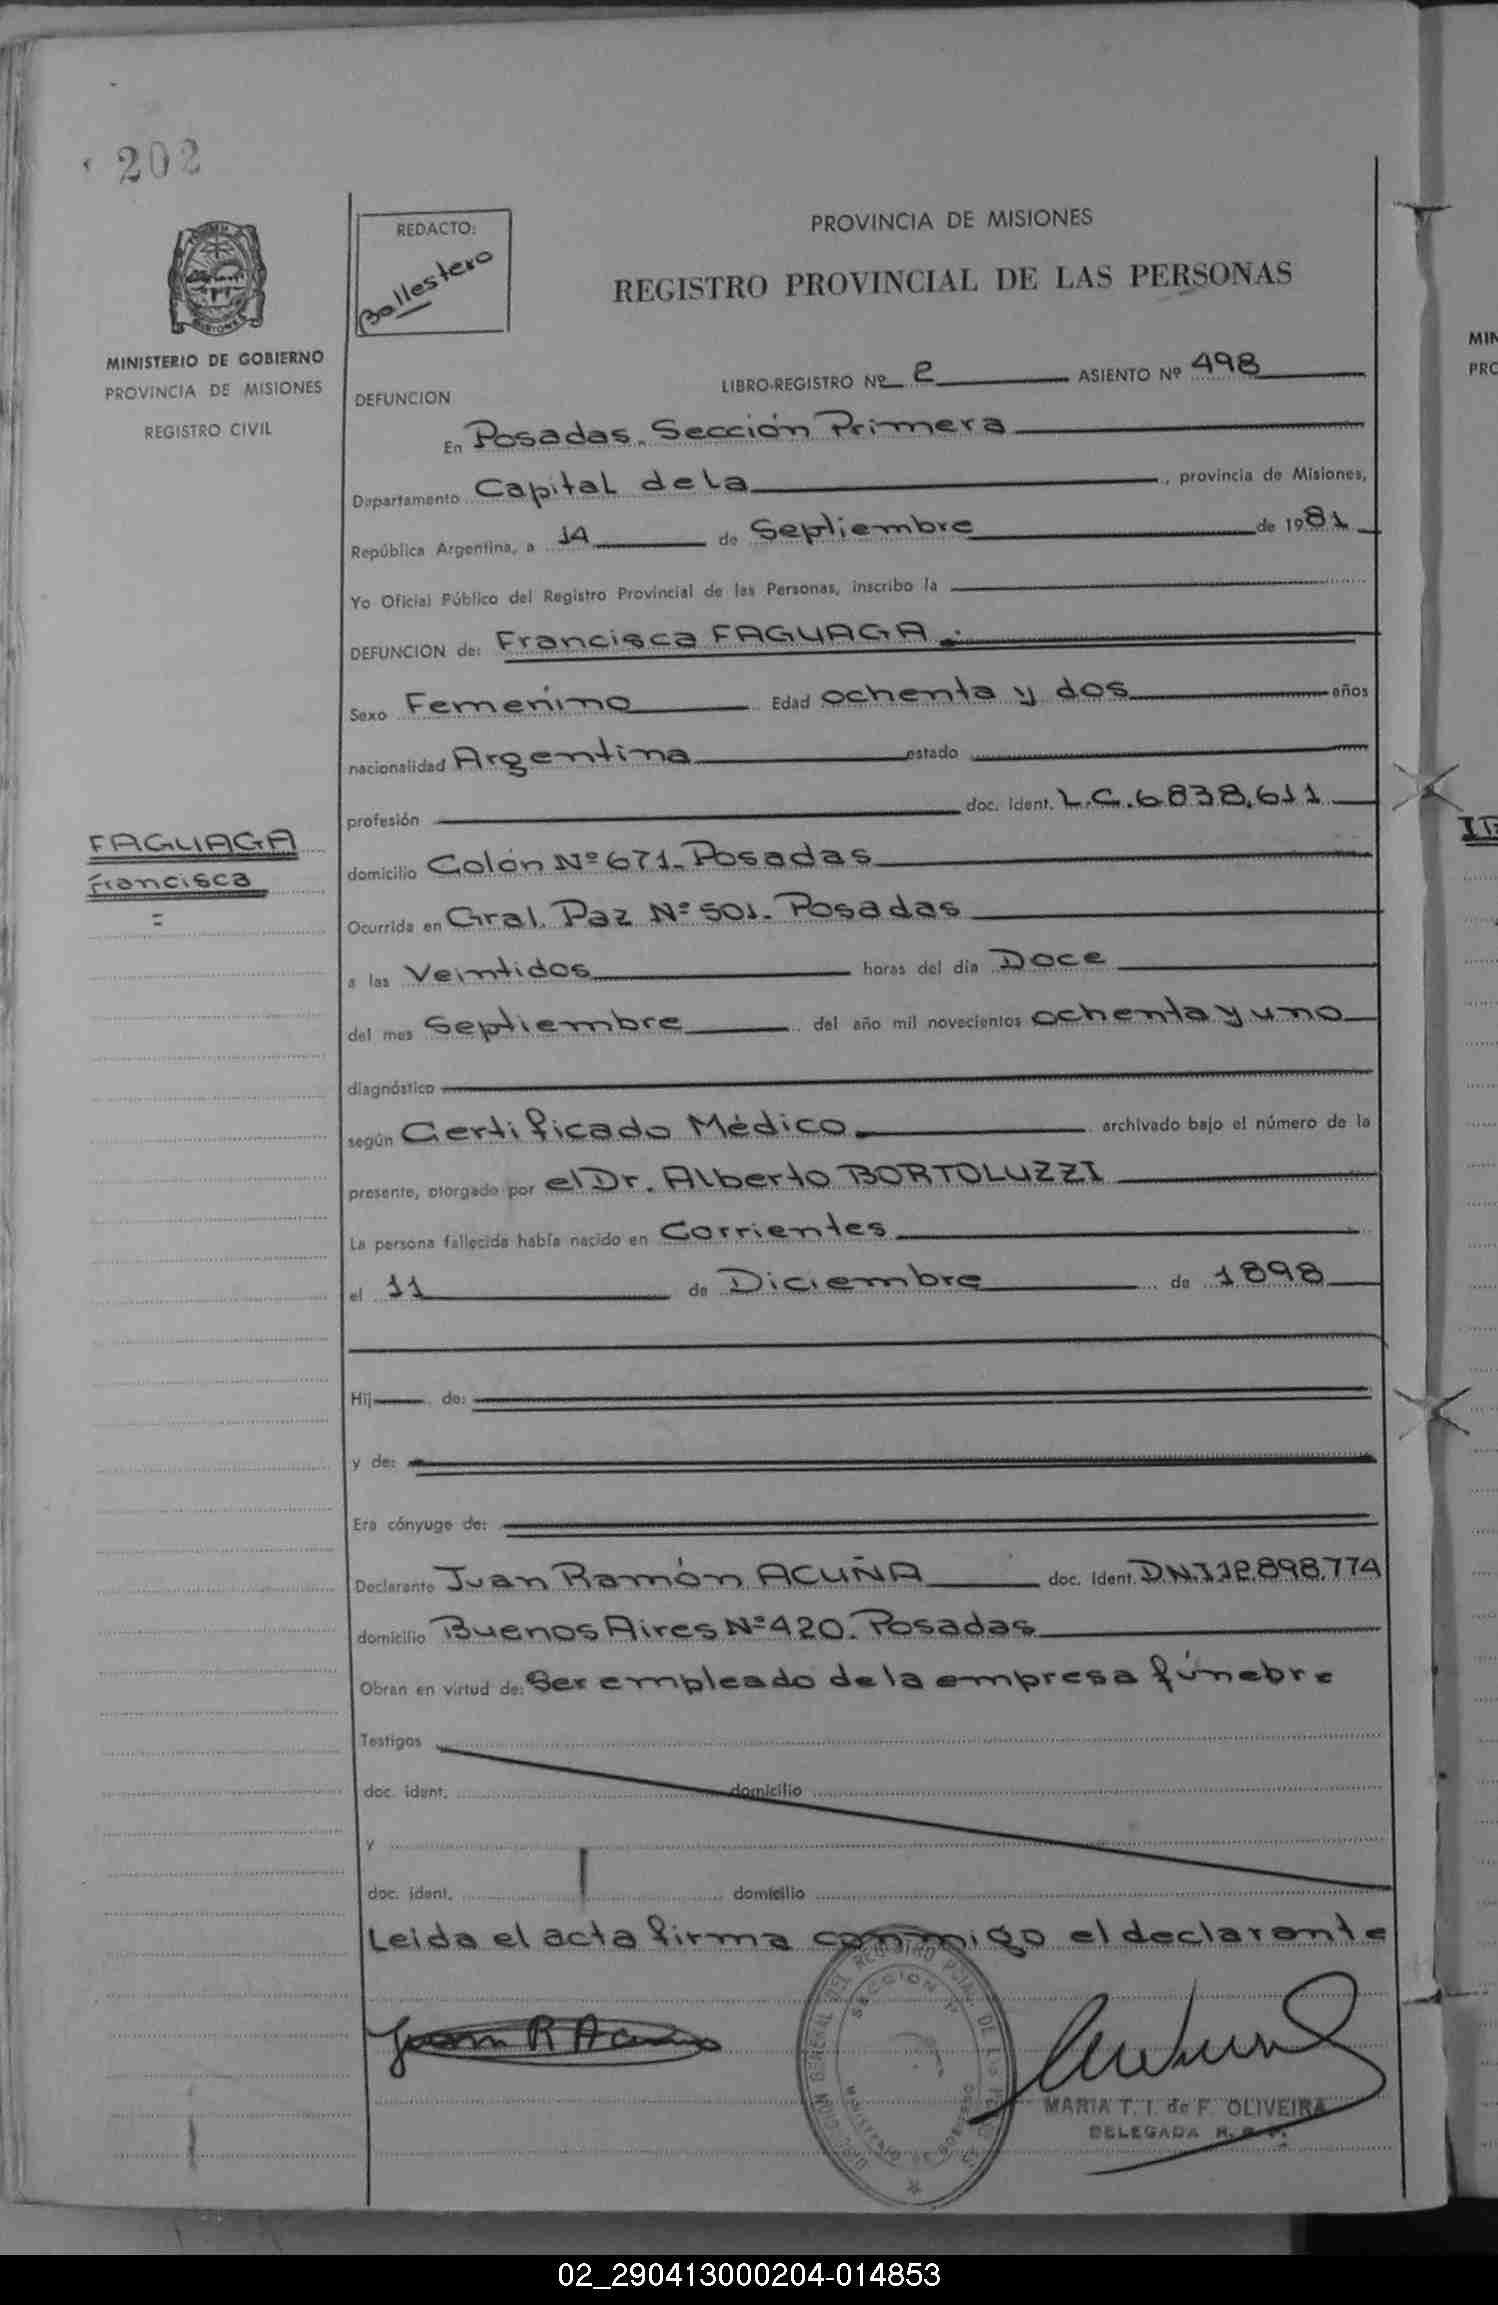 202
REDACTO:
Ballestero
PROVINCIA DE MISIONES
REGISTRO PROVINCIAL DE LAS PERSONAS
MINISTERIO DE GOBIERNO
PROVINCIA DE MISIONES
REGISTRO CIVIL
LIBRO-REGISTRO Nº 2 ASIENTO Nº 498
DEFUNCION
En Posadas. Sección Primera
Departamento Capital de la, provincia de Misiones,
República Argentina, a 14 de Septiembre de 1981
Yo Oficial Público del Registro Provincial de las Personas, inscribo la
DEFUNCION de: Francisca FAGUAGA.
Sexo Femenino Edad ochenta y dos años
nacionalidad Argentina estado
profesión doc. Ident. L.C.6838.611
FAGUAGA
Francisca
domicilio Colón Nº 671. Posadas
Ocurrida en Gral. Paz Nº 501. Posadas
a las Veintidos horas del día Doce
del mes Septiembre del año mil novecientos ochenta y uno
diagnóstico
según Certificado Médico archivado bajo el número de la
presente, otorgado por el Dr. Alberto BORTOLUZZI
La persona fallecida había nacido en Corrientes
el 11 de Diciembre de 1898
Hij de:
y de:
Era cónyuge de:
Declarante Juan Ramón ACUÑA doc. Ident. D.N.I 12.898.774
domicilio Buenos Aires Nº 420. Posadas
Obran en virtud de: Ser empleado de la empresa fúnebre
Testigos
doc. ident. domicilio
y
doc. ident. domicilio
Leida el acta firma conmigo el declarante
Juan R Acuña
MARIA T. I. de F. OLIVEIRA
DELEGADA
02_290413000204-014853